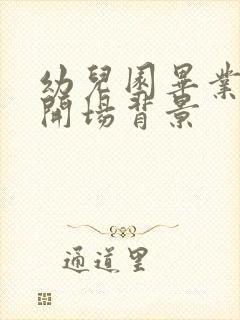 幼兒園畢業
開場背景
通道里